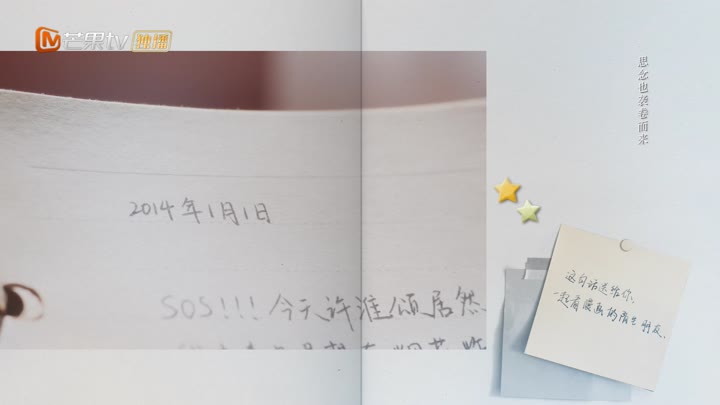 芒果tv 独播
思念也袭卷而来
2014年1月1日
SOS!!!今天许淮颂居然
这句话送给你,
一起看漫画的陌生朋友、